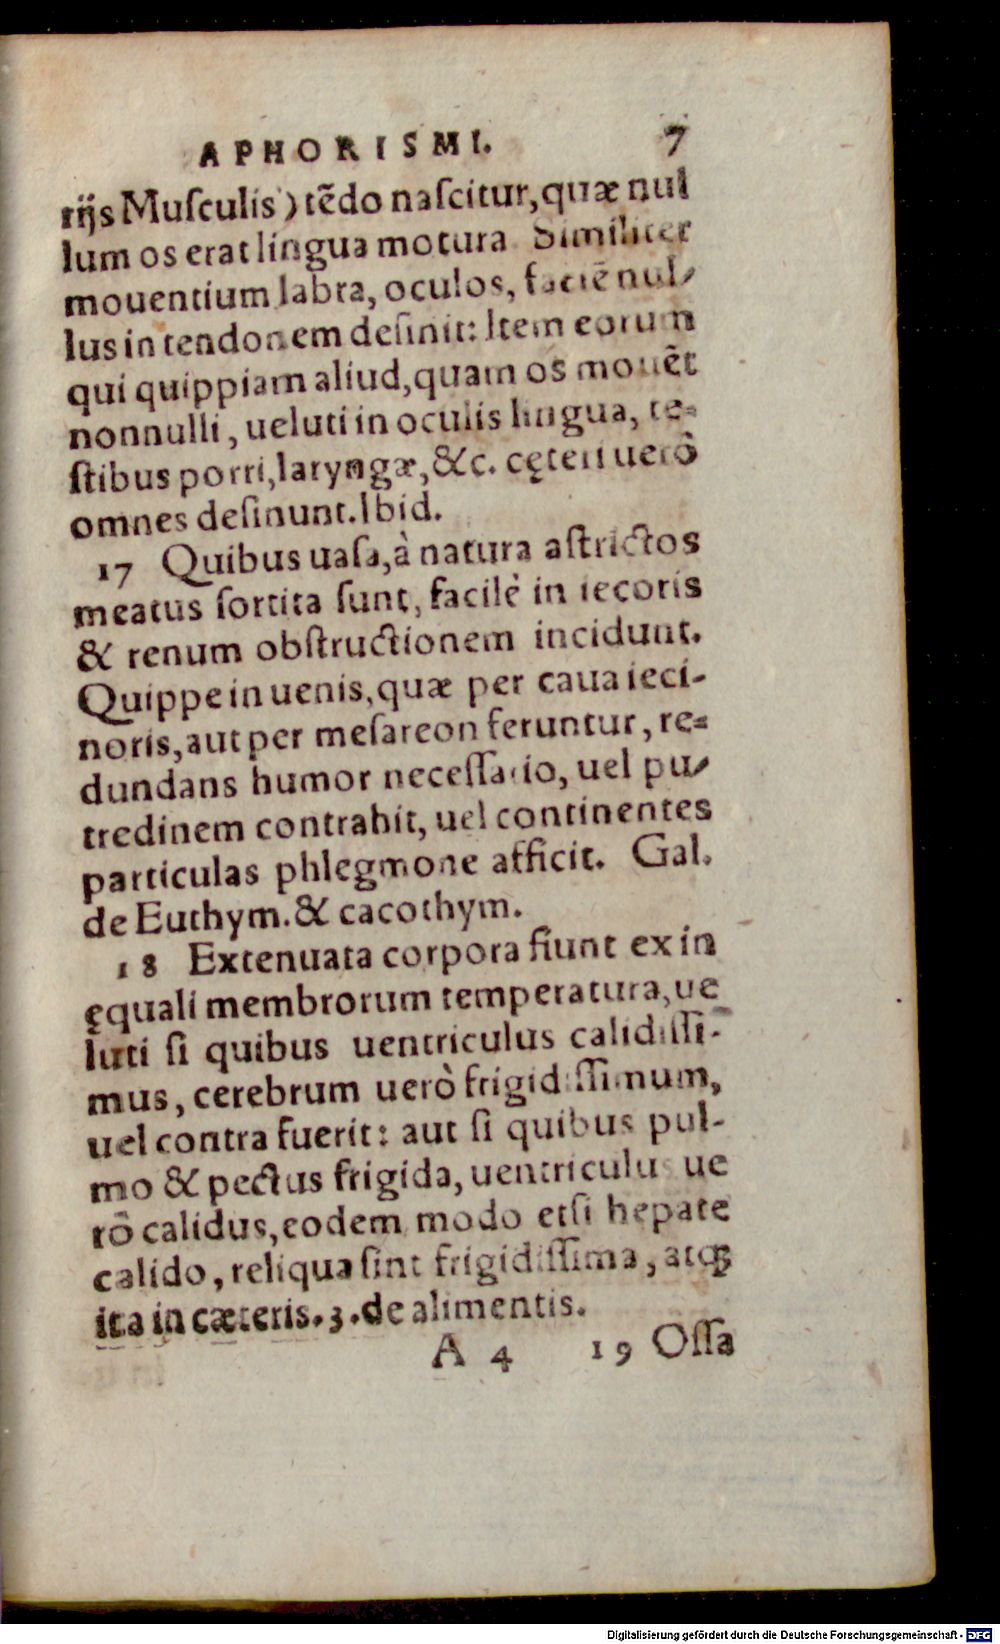 APHORISMI. 7
rijs Musculis) tẽdo nascitur, quæ nul
lum os erat lingua motura Similiter
mouentium labra, oculos, faciẽ nul-
lus in tendonem desinit: Item eorum
qui quippiam aliud, quam os mouẽt
nonnulli, ueluti in oculis lingua, te-
stibus porri, laryngæ, &c. cęteri uerò
omnes desinunt. Ibid.
17 Quibus uasa, à natura astrictos
meatus sortita sunt, facilè in iecoris
& renum obstructionem incidunt.
Quippe in uenis, quæ per caua ieci-
noris, aut per mesareon feruntur, re-
dundans humor necessario, uel pu-
tredinem contrahit, uel continentes
particulas phlegmone afficit. Gal.
de Euthym. & cacothym.
18 Extenuata corpora fiunt ex in
ęquali membrorum temperatura, ue
luti si quibus uentriculus calidissi-
mus, cerebrum uerò frigidissimum,
uel contra fuerit: aut si quibus pul-
mo & pectus frigida, uentriculus ue
rò calidus, eodem modo etsi hepate
calido, reliqua sint frigidissima, atqꝫ
ita in cæteris. 3. de alimentis.
A 4 19 Ossa
Digitalisierung gefördert durch die Deutsche Forschungsgemeinschaft - DFG